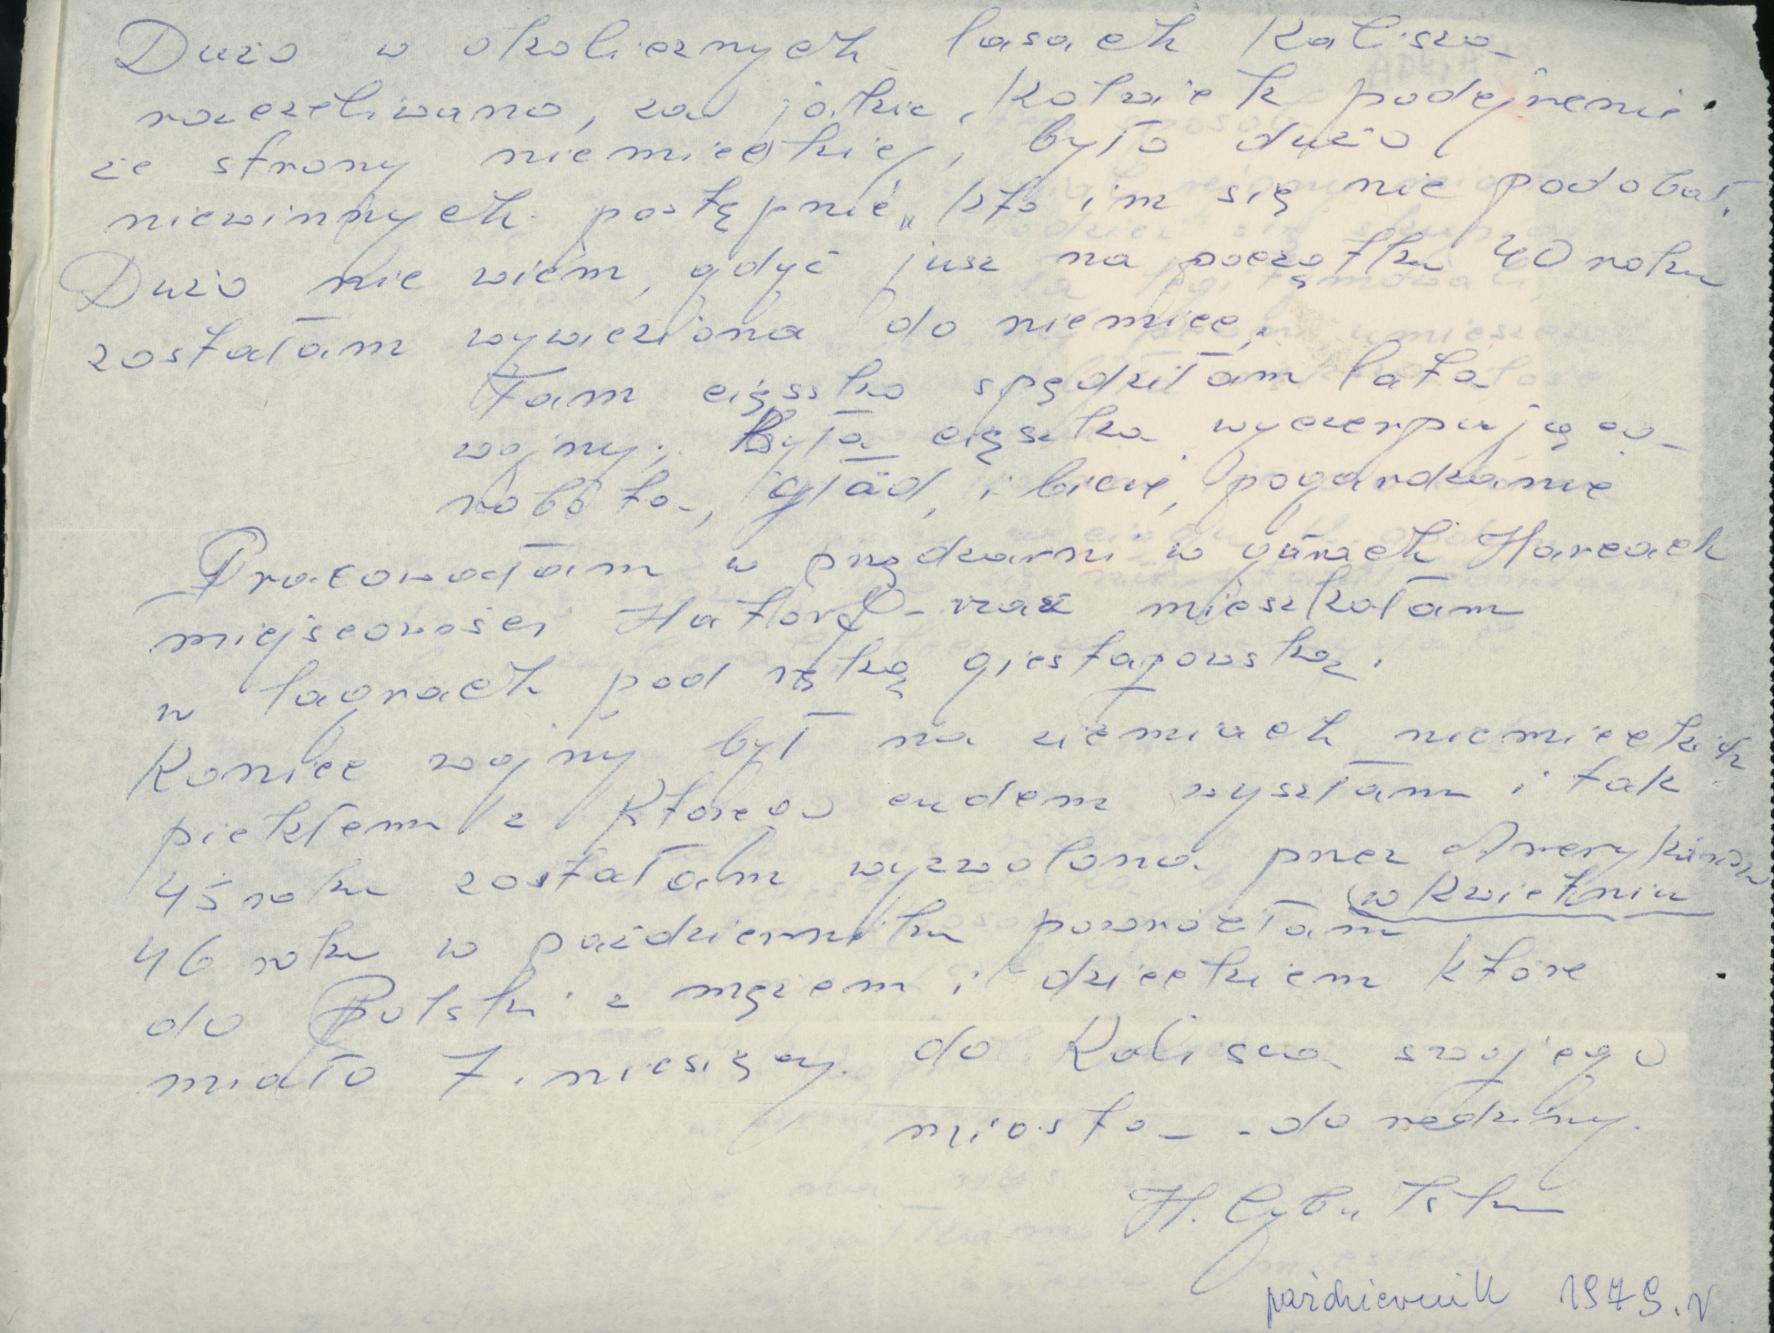 Dużo w okolicznych lasach Kalisza
rozczeliwano, za jakie, kolwiek podejrzenie
ze strony niemieckiej, było dużo
niewinnych postępnie„ kto im się nie podobał.
Dużo nie wiem, gdyć jusz na początku 40 roku
zostałam wywieziona do niemiec.
Tam cięszko spędziłam lata
wojny; Była cięszka wyczerpująca
robota, głód, i bicie, pogardzanie
Pracowałam w przędzarni w górach Harcach
miejscowości Hatorf - wraz mieszkałam
w lagrach pod ręką giestapowską.
Koniec wojny był na ziemiach niemieckich
piekłem z którego cudem wyszłam i tak
45 roku zostałam wyzwolona przez Amerykanów
(w kwietniu
46 roku w październiku powróciłam
do Polski z mężem i dzieckiem które
miało 7. miesięcy. do Kalisza swojego
miasta - do rodziny.
H.
październik 1979.r